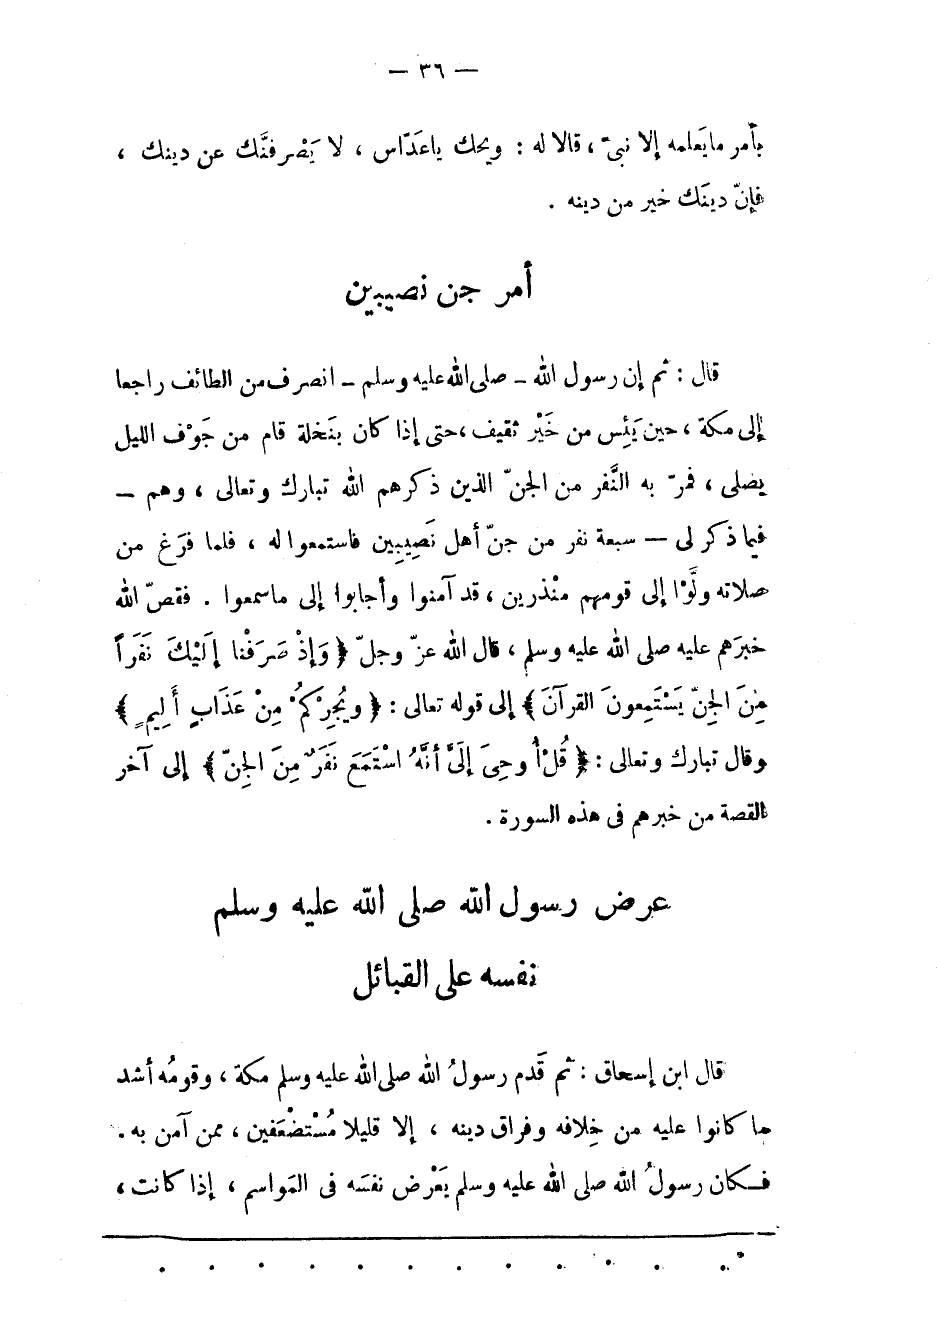 — ٣٦ —
بأمر ما يَعلمه إلا نبىّ ، قالا له : ويحك ياعَدّاس ، لا يَصْرفنَّك عن دينك ،
فإنّ دينَك خير من دينه .
أمر جن نصيبين
قال : ثم إن رسول الله – صلى الله عليه وسلم – انصرف من الطائف راجعا
إلى مكة ، حين يَئِس من خَيْر ثقيف ، حتى إذا كان بنَخلة قام من جَوْف الليل
يصلى ، فمرّ به النَّفر من الجنّ الذين ذكرهم الله تبارك وتعالى ، وهم –
فيما ذكر لى – سبعة نفر من جنّ أهل نَصِيبِين فاستمعوا له ، فلما فرَغ من
صلاته ولَّوْا إلى قومهم منْذرين ، قد آمنوا وأجابوا إلى ماسمعوا . فقصّ الله
خبرَهم عليه صلى الله عليه وسلم ، قال الله عزّ وجلّ ﴿ وَإذْ صَرَفْنا إلَيْكَ نَفَراً
مِنَ الجِنّ يَسْتَمِعونَ القرآنَ ﴾ إلى قوله تعالى : ﴿ ويُجِرْكمُ مِنْ عَذَابٍ أَلِيمٍ ﴾
وقال تبارك وتعالى : ﴿ قُلْ أُوحِىَ إلَىَّ أنَّهُ اسْتَمَعَ نَفَرٌ مِنَ الجِنّ ﴾ إلى آخر
القصة من خبرهم فى هذه السورة .
عرض رسول الله صلى الله عليه وسلم
نفسه على القبائل
قال ابن إسحاق : ثم قَدم رسولُ الله صلى الله عليه وسلم مكة ، وقومُه أشد
ما كانوا عليه من خِلافه وفراق دينه ، إلا قليلا مُسْتضْعَفين ، ممن آمن به .
فكان رسولُ الله صلى الله عليه وسلم يَعْرض نفسَه فى المَواسم ، إذا كانت ،